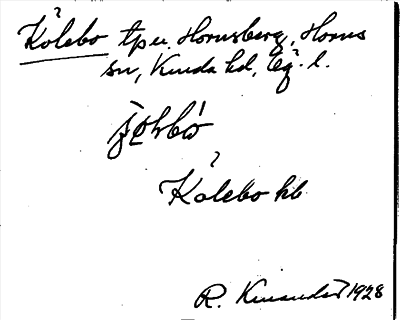 Kålebo tp u. Hornsberg, Horns
sn, Kinda hd, Ög. l.
Kålebo hb
R. Kinander 1928